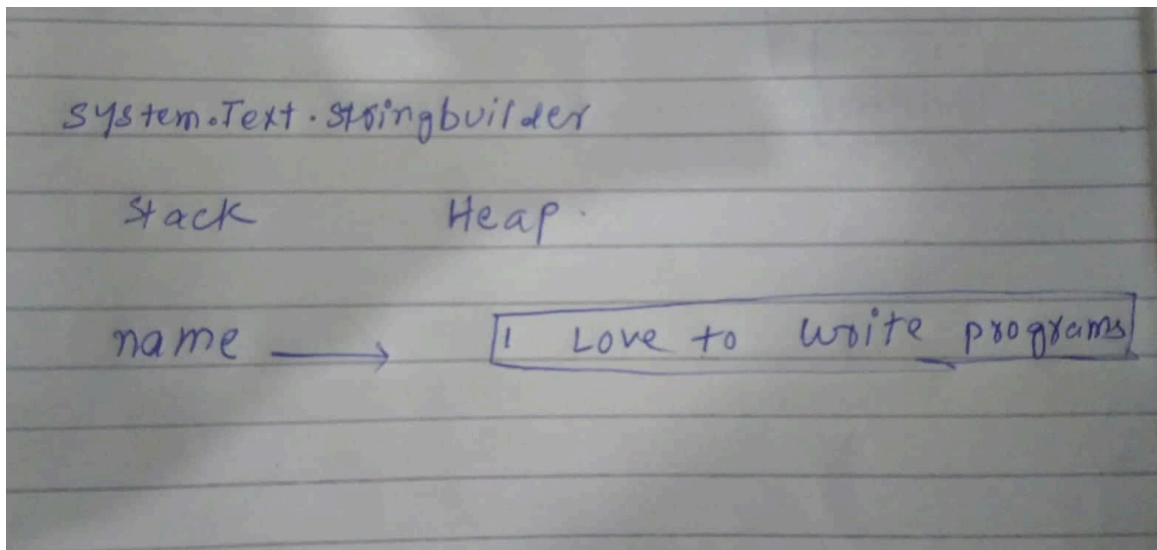 system.Text.stringbuilder
stack Heap.
name → I Love to write programs